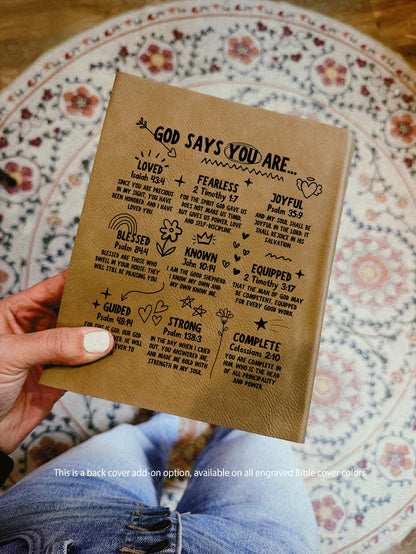 GOD SAYS YOU ARE...
LOVED
Isaiah 43:4
SINCE YOU ARE PRECIOUS
IN MY SIGHT. YOU HAVE
BEEN HONORED, AND I HAVE
LOVED YOU.
FEARLESS
2 Timothy 1:7
FOR THE SPIRIT GOD GAVE US
DOES NOT MAKE US TIMID,
BUT GIVES US POWER, LOVE
AND SELF-DISCIPLINE.
JOYFUL
Psalm 35:9
AND MY SOUL SHALL BE
JOYFUL IN THE LORD: IT
SHALL REJOICE IN HIS
SALVATION.
BLESSED
Psalm 84:4
BLESSED ARE THOSE WHO
DWELL IN YOUR HOUSE; THEY
WILL STILL BE PRAISING YOU.
KNOWN
John 10:14
I AM THE GOOD SHEPHERD
I KNOW MY OWN AND
MY OWN KNOW ME
EQUIPPED
2 Timothy 3:17
THAT THE MAN OF GOD MAY
BE COMPETENT, EQUIPPED
FOR EVERY GOOD WORK.
GUIDED
Psalm 48:14
FOR THIS IS GOD, OUR GOD
EVER HE WILL
EVEN TO
STRONG
Psalm 138:3
IN THE DAY WHEN I CRIED
OUT, YOU ANSWERED ME,
AND MADE ME BOLD WITH
STRENGTH IN MY SOUL.
COMPLETE
Colossians 2:10
YOU ARE COMPLETE IN
HIM, WHO IS THE HEAD
OF ALL PRINCIPALITY
AND POWER.
This is a back cover add-on option, available on all engraved Bible cover colors.